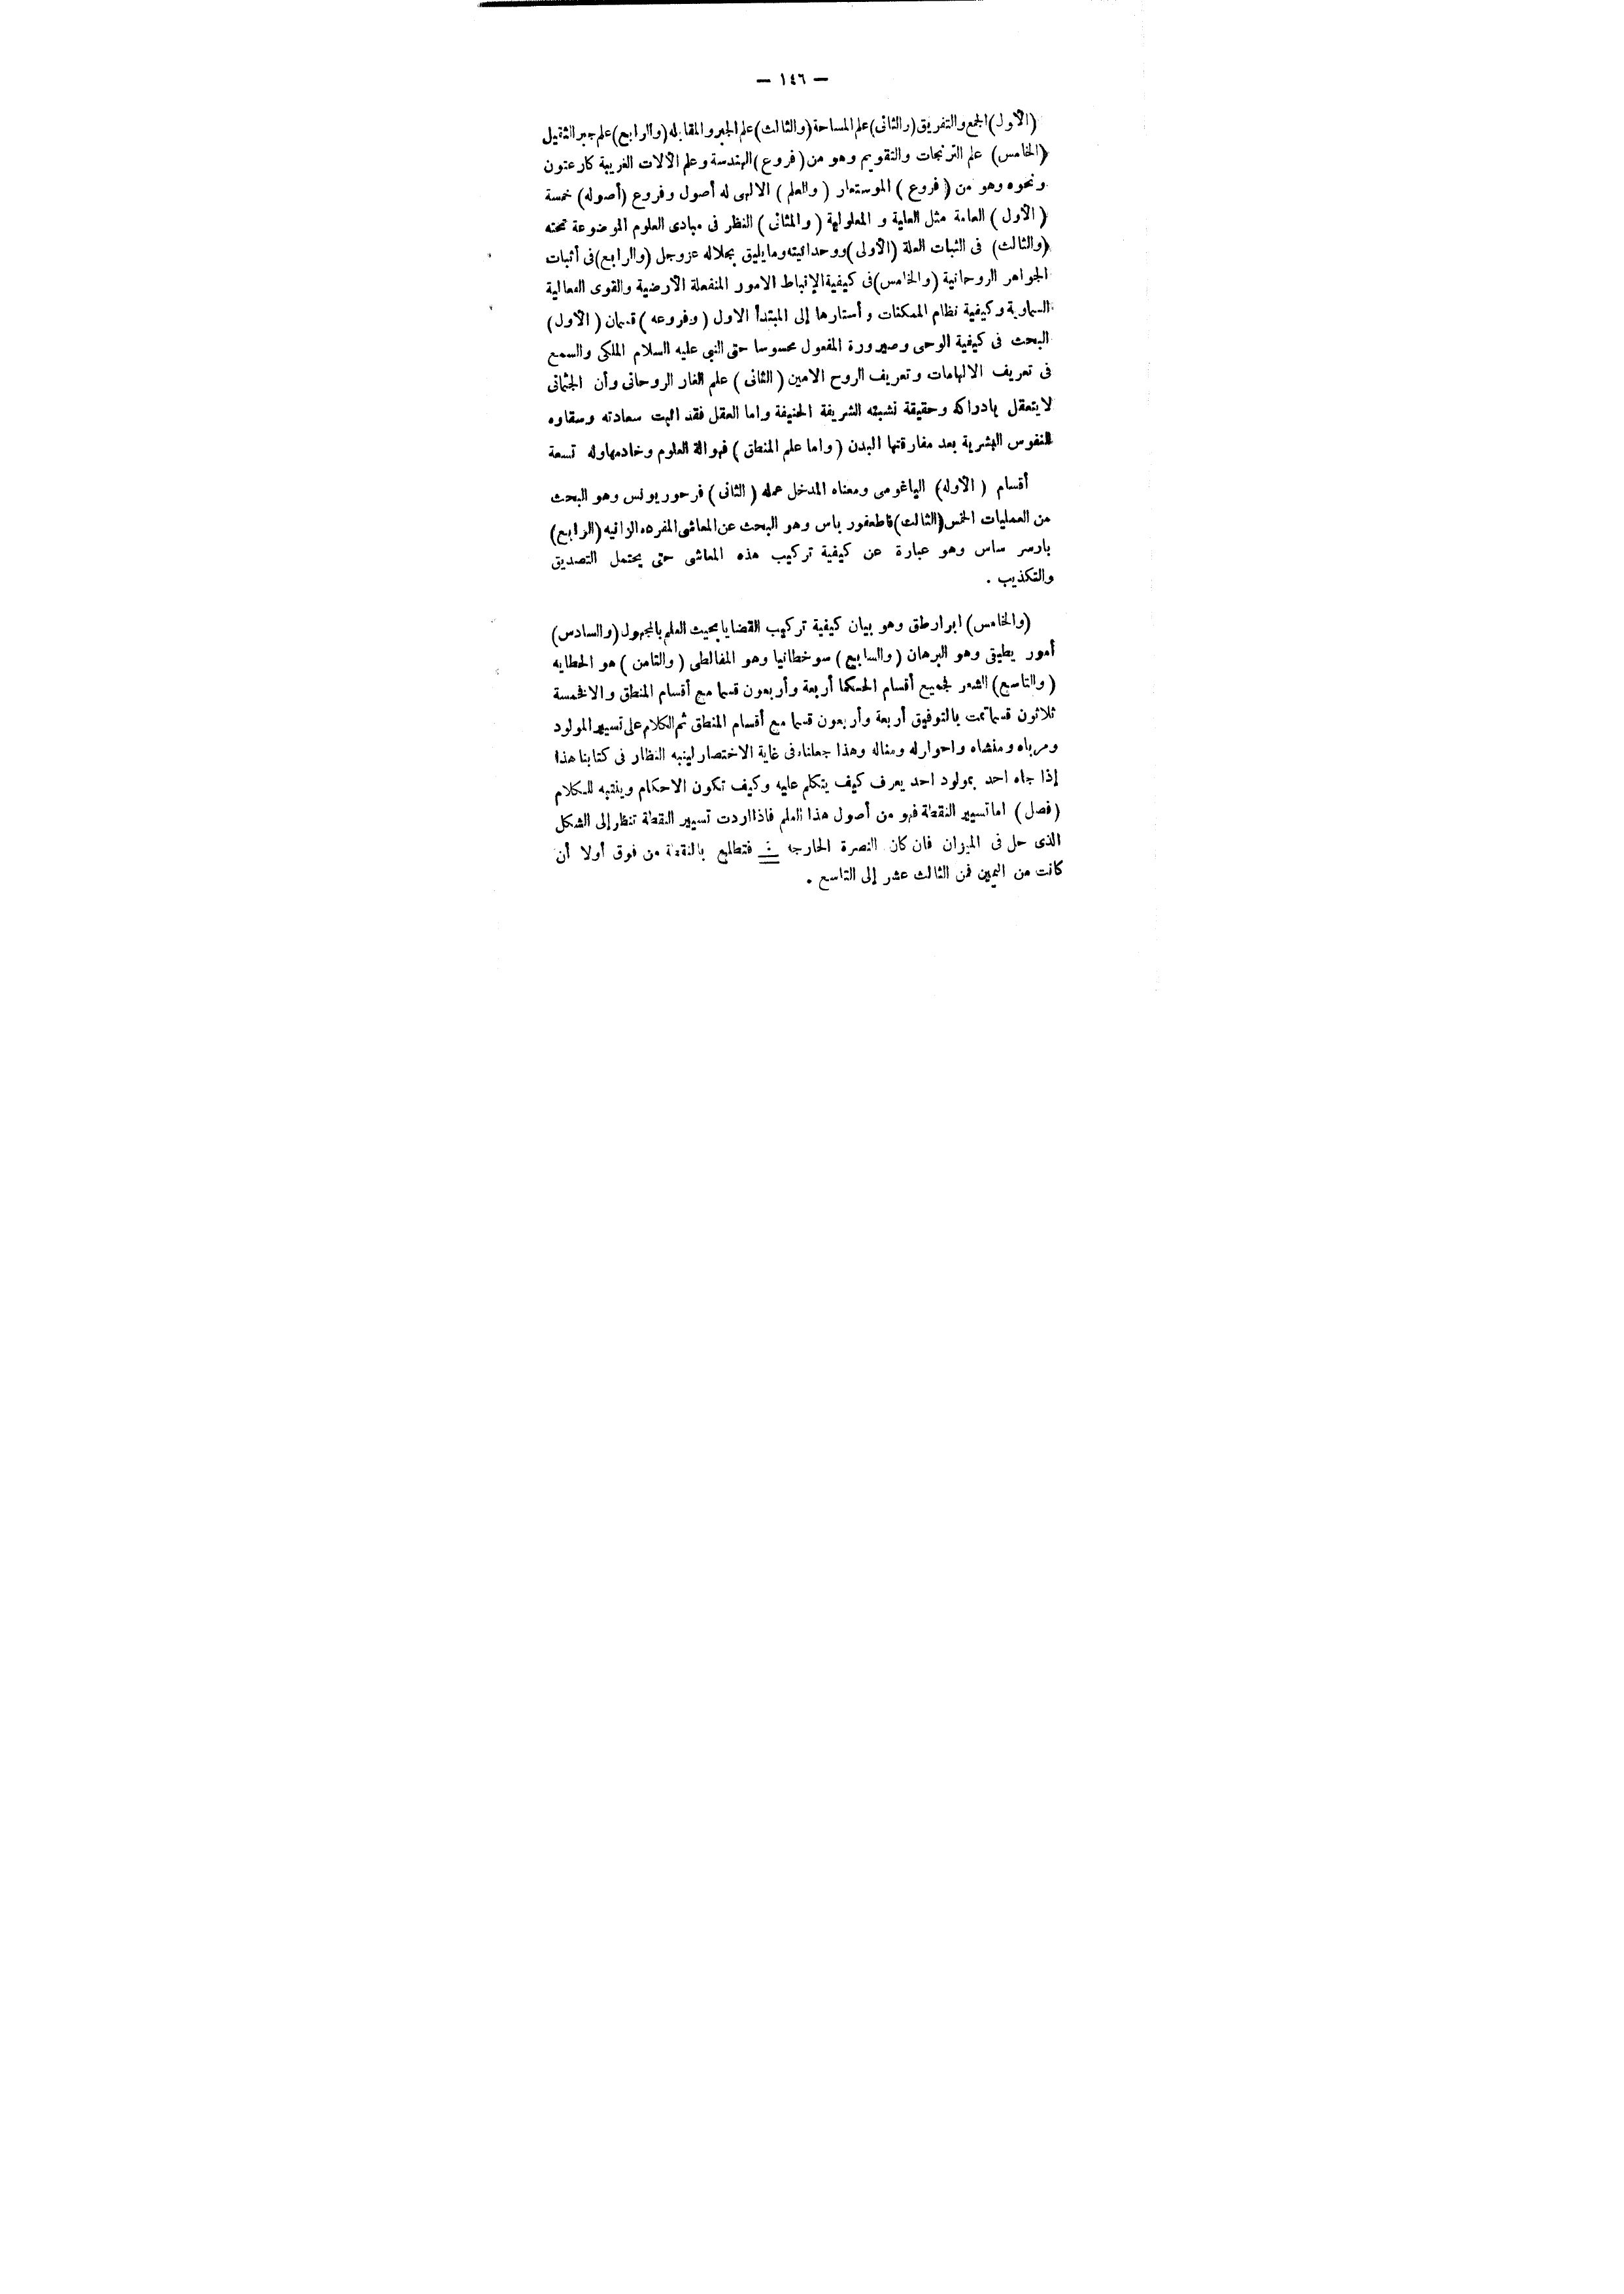 — ١٤٦ —
(الأول) الجمع والتفريق (والثانى) علم المساحة (والثالث) علم الجبر والمقابله (والرابع) علم جبر الثقيل
(الخامس) علم الترنجات والتقويم وهو من (فروع) الهندسة وعلم الآلات الغريبة كارعنون
ونحوه وهو من (فروع) الموستمار (والعلم) الالهى له أصول وفروع (أصوله) خمسة
(الأول) العامة مثل العلية و المعلولية (والمثانى) النظر فى مبادى العلوم الموضوعة تحته
(والثالث) فى الثبات العلة (الأولى) ووحدانيته ومايليق بجلاله عزوجل (والرابع) فى أثبات
الجواهر الروحانية (والخامس) فى كيفية الإنباط الامور المنفعلة الأرضية والقوى الفعالية
السماوية وكيفية نظام الممكنات وأستارها إلى المبتدأ الاول (وفروعه) قسمان (الأول)
البحث فى كيفية الوحى وصيرورة المفعول محسوسا حتى النبى عليه السلام الملكى والسمع
فى تعريف الالهامات وتعريف الروح الامين (الثانى) علم الغار الروحانى وأن الجثمانى
لايتعقل بادراكه وحقيقة نشبثه الشريفة الحنيفة واما العقل فقد اثبت سعادته وسقاوه
للنفوس البشرية بعد مفارقتها البدن (واما علم المنطق) فهوالة العلوم وخادمهاوله تسعة
أقسام (الأوله) الياغومى ومعناه المدخل عمله (الثانى) فرحوريونس وهو البحث
من العمليات الخمس (الثالث) قاطعفور باس وهو البحث عن المعاشى المفرده الزانيه (الرابع)
بارسر ساس وهو عبارة عن كيفية تركيب هذه المعاشى حتى يحتمل التصديق
والتكذيب .
(والخامس) ابرارطق وهو بيان كيفية تركيب القضايا بحيث العلم بالمجهول (والسادس)
أمور يطيق وهو البرهان (والسابع) سوخطانيا وهو المغالطى (والثامن) هو الخطايه
(والتاسع) الشعر فجميع أقسام الحسكما أربعة وأربعون قسما مع أقسام المنطق والافخمسة
ثلاثون قسماتمت بالتوفيق أربعة وأربعون قسما مع أقسام المنطق ثم الكلام على تسيير المولود
ومرباه ومنشاه واحوارله ومناله وهذا جعلناه فى غاية الاختصار لينبه النظار فى كتابنا هذا
إذا جاه احد بمولود احد يعرف كيف يتكلم عليه وكيف تكون الاحكام وينتبه للكلام
(فصل) اماتسيير النقطة فهو من أصول هذا العلم فاذا اردت تسيير النقطة تنظر إلى الشكل
الذى حل فى الميزان فان كان النصرة الخارجه فتطلع بالنقطة من فوق أولا أن
كانت من اليمين فمن الثالث عشر إلى التاسع .